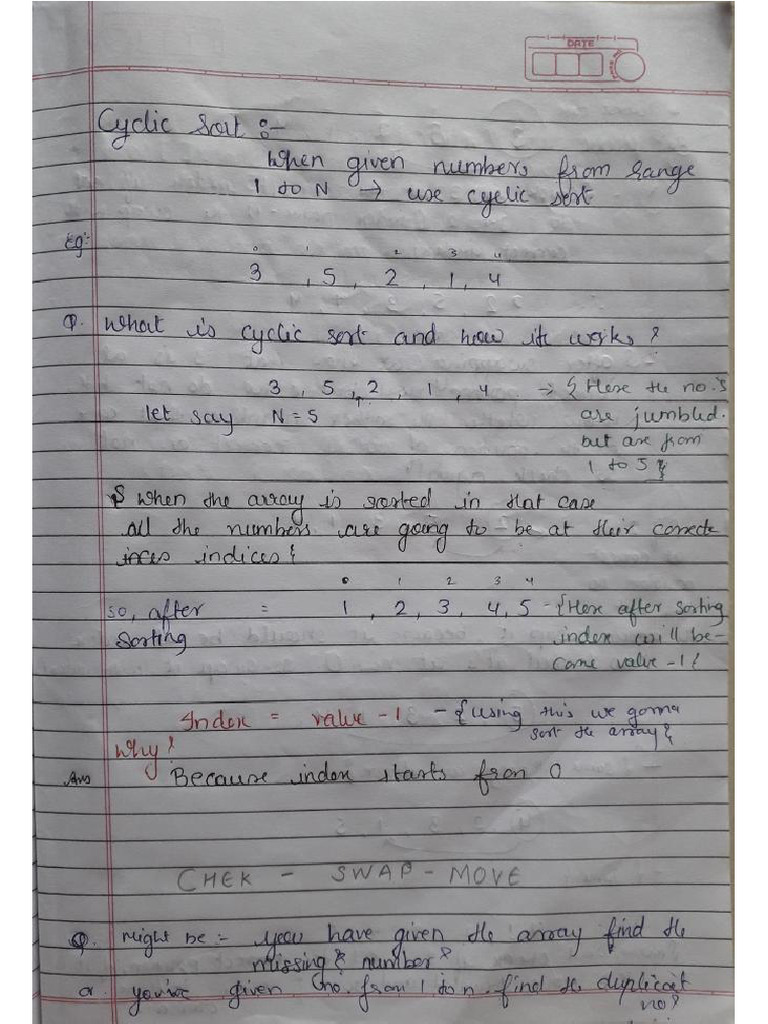 DATE
Cyclic Sort :-
When given numbers from range
1 to N → use cyclic sort
Eg:
0 1 2 3 4
3 , 5 , 2 , 1 , 4
Q. What is cyclic sort and how it works ?
3 , 5 , 2 , 1 , 4 → { Here the no.'s
let say N = 5 are jumbled.
but are from
1 to 5 }
{ when the array is sorted in that case
all the numbers are going to be at their correct
indices }
0 1 2 3 4
so, after = 1 , 2 , 3 , 4 , 5 - { Here after sorting
sorting index will be-
come value -1 }
Index = value -1 - { using this we gonna
sort the array }
Why ?
Ans Because index starts from 0
CHEK - SWAP - MOVE
Q. Might be :- you have given the array find the
missing number ?
or you've given no. from 1 to n. find the duplicat
no ?